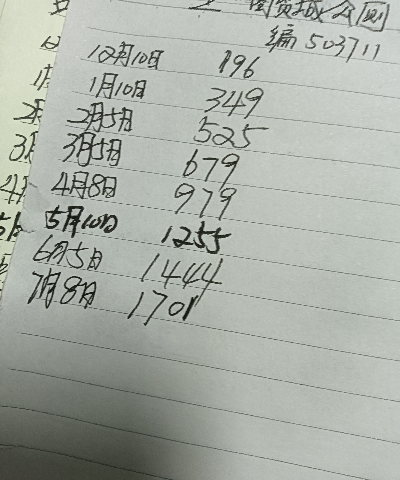 编 503711
12月10日 196
1月10日 349
2月5日 525
3月5日 679
4月8日 979
5月10日 1255
6月5日 1444
7月8日 1701